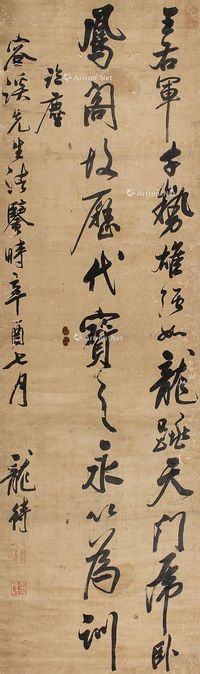 王右軍字勢雄強如龍跳天門虎臥
鳳閣故歷代寶之永以為訓
容溪先生法鑒時辛酉七月
龍